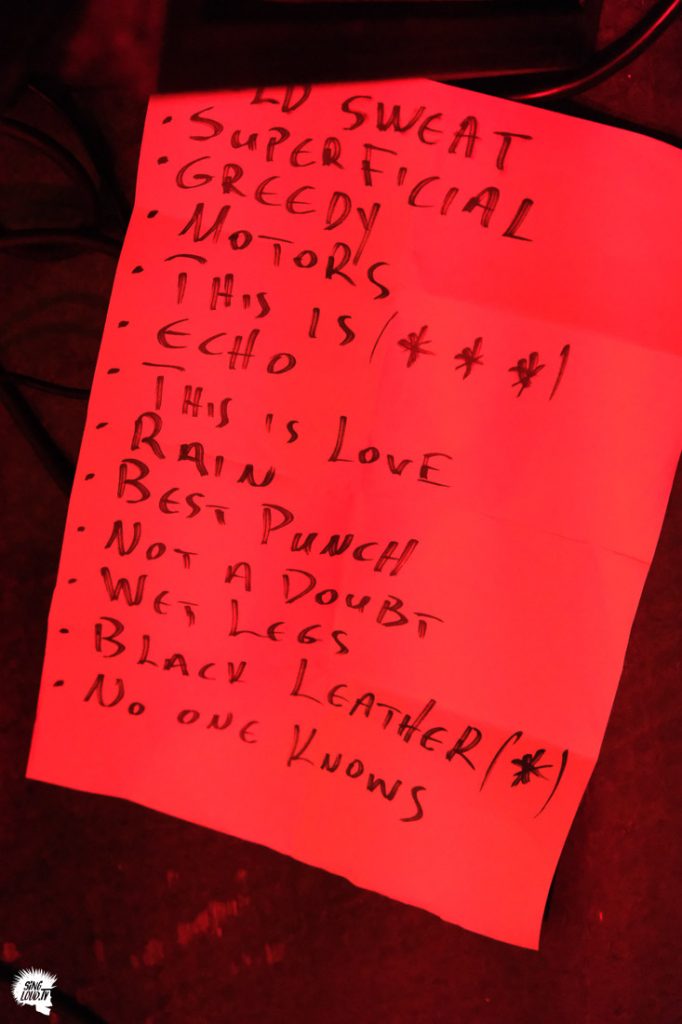 LD SWEAT
· SUPERFICIAL
· GREEDY
· MOTORS
· THIS IS (* * *)
· ECHO
· THIS IS LOVE
· RAIN
· BEST PUNCH
· NOT A DOUBT
· WET LEGS
· BLACK LEATHER (*)
· NO ONE KNOWS
SING
LOUD.TV